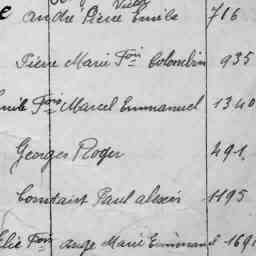 Victor
andré Pierre Emile 716
Pierre Marie Fois Colombin 935
Emile Fois Marcel Emmanuel 1340
Georges Roger 491.
Constant Paul alexis 1195
Elie Fois ange Marie Emmanuel 1691